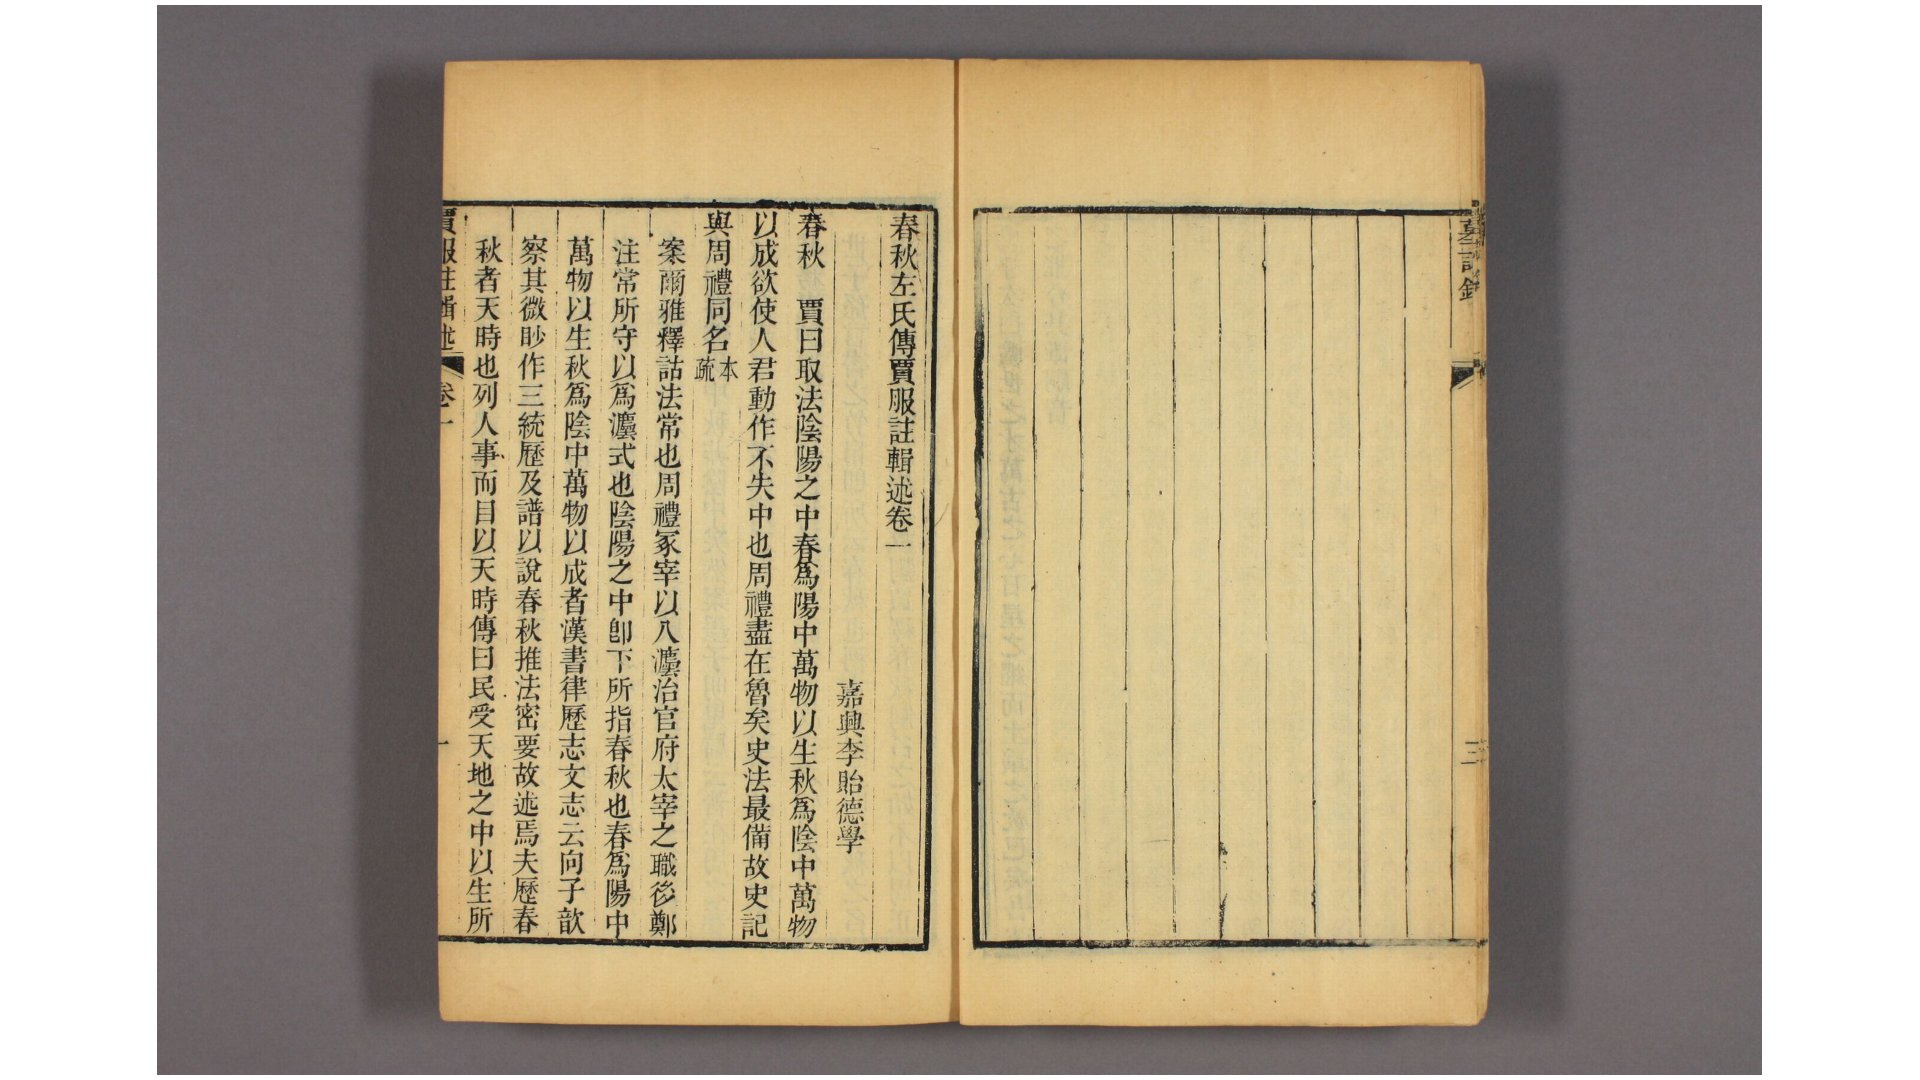 春秋左氏傳賈服註輯述卷一
嘉興李貽德學
春秋　賈曰取法陰陽之中春爲陽中萬物以生秋爲陰中萬物
以成欲使人君動作不失中也周禮盡在魯矣史法最備故史記
與周禮同名本疏
案爾雅釋詁法常也周禮冢宰以八灋治官府太宰之職後鄭
注常所守以爲灋式也陰陽之中卽下所指春秋也春爲陽中
萬物以生秋爲陰中萬物以成者漢書律歷志文志云向子歆
察其微眇作三統歷及譜以說春秋推法密要故述焉夫歷春
秋者天時也列人事而目以天時傳曰民受天地之中以生所
賈服註輯述
卷一
一